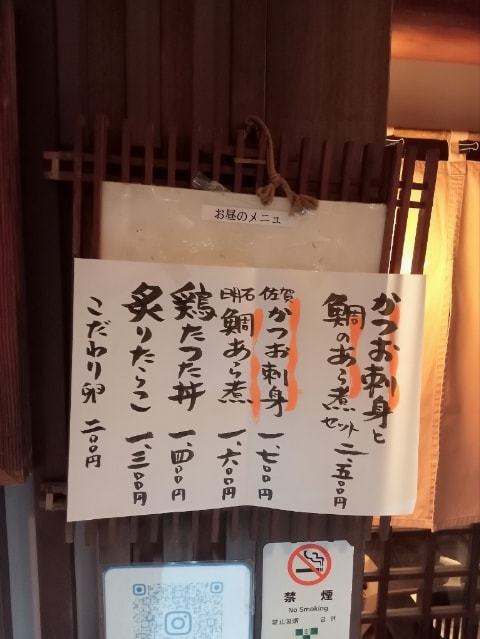 お昼のメニュー
かつお刺身と
鯛のあら煮セット 二、五〇〇円
佐賀かつお刺身 一、七〇〇円
明石鯛あら煮 一、六〇〇円
鶏たつた丼 一、四〇〇円
炙りたらこ 一、三〇〇円
こだわり卵 二〇〇円
禁煙
No Smoking
禁止吸烟 금연